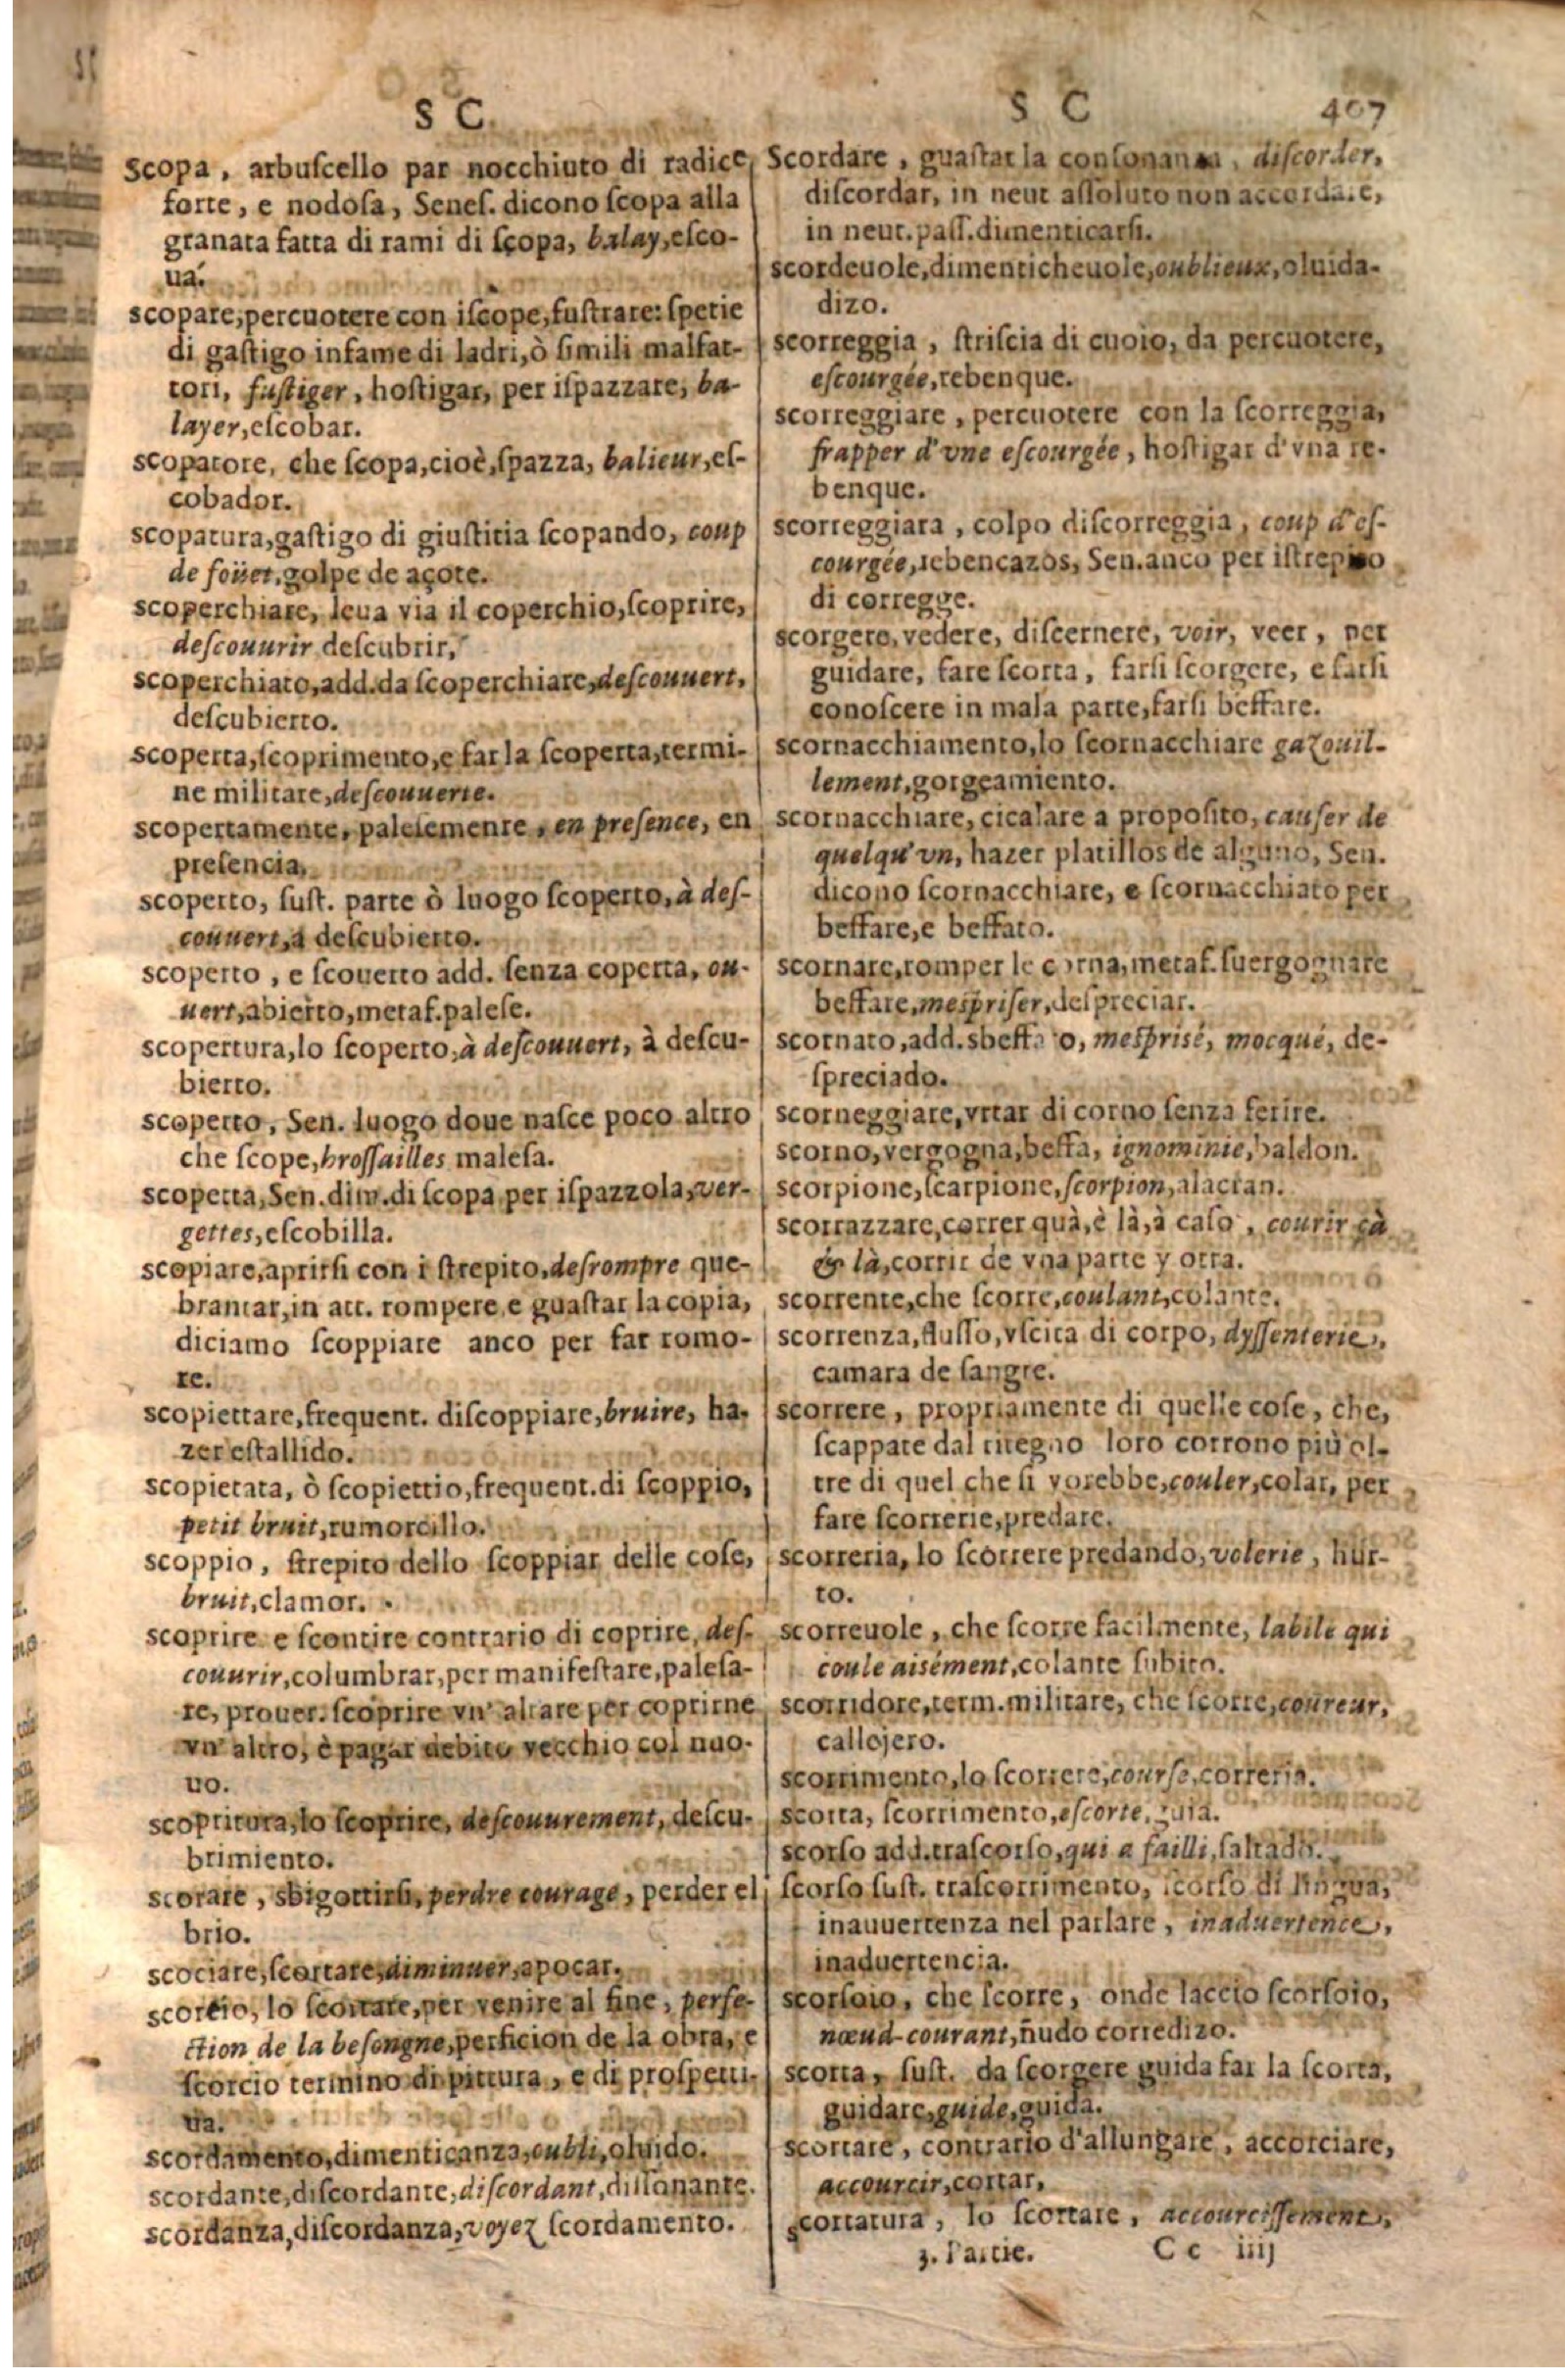 S C
Scopa, arbuſcello par nocchiuto di radice
forte, e nodoſa, Seneſ. dicono ſcopa alla
granata fatta di rami di ſcopa, balay, eſco-
ua.
scopare, percuotere con iſcope, fuſtrare: ſpetie
di gaſtigo infame di ladri, ò ſimili malfat-
tori, fuſtiger, hoſtigar, per iſpazzare, ba-
layer, eſcobar.
scopatore, che ſcopa, cioè, ſpazza, balieur, eſ-
cobador.
scopatura, gaſtigo di giuſtitia ſcopando, coup
de foüet, golpe de açote.
scoperchiare, leua via il coperchio, ſcoprire,
deſcouurir deſcubrir,
scoperchiato, add. da ſcoperchiare, deſcouuert,
deſcubierto.
scoperta, ſcoprimento, e far la ſcoperta, termi-
ne militare, deſcouuerte.
scopertamente, paleſemente, en preſence, en
preſencia.
scoperto, ſuſt. parte ò luogo ſcoperto, à deſ-
couuert, à deſcubierto.
scoperto, e ſcouerto add. ſenza coperta, ou-
uert, abierto, metaf. paleſe.
scopertura, lo ſcoperto, à deſcouuert, à deſcu-
bierto.
scoperto, Sen. luogo doue naſce poco altro
che ſcope, broſſailles maleſa.
scopetta, Sen. dim. di ſcopa per iſpazzola, ver-
gettes, eſcobilla.
scopiare, aprirſi con iſtrepito, deſrompre que-
brantar, in att. rompere e guaſtar la copia,
diciamo ſcoppiare anco per far romo-
re.
scopiettare, frequent. diſcoppiare, bruire, ha-
zer eſtallido.
scopietata, ò ſcopiettio, frequent. di ſcoppio,
petit bruit, rumorcillo.
scoppio, ſtrepito dello ſcoppiar delle coſe,
bruit, clamor.
scoprire e ſcourire contrario di coprire, deſ-
couurir, columbrar, per manifeſtare, paleſa-
re, prouer. ſcoprire vn' altare per coprirne
vn' altro, è pagar debito vecchio col nuo-
uo.
scopritura, lo ſcoprire, deſcouurement, deſcu-
brimiento.
scorare, sbigottirſi, perdre courage, perder el
brio.
scociare, ſcortare, diminuer, apocar.
scorcio, lo ſcortare, per venire al fine, perfe-
ction de la beſongne, perficion de la obra, e
ſcorcio termino di pittura, e di proſpetti-
ua.
scordamento, dimenticanza, oubli, oluido.
scordante, diſcordante, diſcordant, diſſonante.
scordanza, diſcordanza, voyez ſcordamento.
S C 407
Scordare, guaſtar la conſonanza, diſcorder,
diſcordar, in neut aſſoluto non accordare,
in neut. paſſ. dimenticarſi.
scordeuole, dimenticheuole, oublieux, oluida-
dizo.
scorreggia, ſtriſcia di cuoio, da percuotere,
eſcourgée, rebenque.
scorreggiare, percuotere con la ſcorreggia,
frapper d'vne eſcourgée, hoſtigar d'vna re-
benque.
scorreggiara, colpo diſcorreggia, coup d'eſ-
courgée, rebencazos, Sen. anco per iſtrepito
di corregge.
scorgere, vedere, diſcernere, voir, veer, per
guidare, fare ſcorta, farſi ſcorgere, e farſi
conoſcere in mala parte, farſi beffare.
scornacchiamento, lo ſcornacchiare gazouil-
lement, gorgeamiento.
scornacchiare, cicalare a propoſito, cauſer de
quelqu'vn, hazer platillos de alguno, Sen.
dicono ſcornacchiare, e ſcornacchiato per
beffare, e beffato.
scornare, romper le corna, metaf. ſuergognare
beffare, meſpriſer, deſpreciar.
scornato, add. sbeffato, meſpriſé, mocqué, de-
ſpreciado.
scorneggiare, vrtar di corno ſenza ferire.
scorno, vergogna, beffa, ignominie, baldon.
scorpione, ſcarpione, ſcorpion, alacran.
scorrazzare, correr quà, è là, à caſo, courir çà
& là, corrir de vna parte y otra.
scorrente, che ſcorre, coulant, colante.
scorrenza, fluſſo, vſcita di corpo, dyſſenterie,
camara de ſangre.
scorrere, propriamente di quelle coſe, che,
ſcappate dal ritegno loro corrono più ol-
tre di quel che ſi vorebbe, couler, colar, per
fare ſcorrerie, predare.
scorreria, lo ſcorrere predando, volerie, hur-
to.
scorreuole, che ſcorre facilmente, labile qui
coule aisément, colante ſubito.
scorridore, term. militare, che ſcorre, coureur,
callejero.
scorrimento, lo ſcorrere, courſe, correria.
scorta, ſcorrimento, eſcorte, guia.
scorſo add. traſcorſo, qui a failli, faltado.
ſcorſo ſuſt. traſcorrimento, ſcorſo di lingua,
inauuertenza nel parlare, inaduertence,
inaduertencia.
scorſoio, che ſcorre, onde laccio ſcorſoio,
nœud-courant, ñudo corredizo.
scorta, ſuſt. da ſcorgere guida far la ſcorta,
guidare, guide, guida.
scortare, contrario d'allungare, accorciare,
accourcir, cortar,
scortatura, lo ſcortare, accourciſſement,
3. Partie. Cc iiij